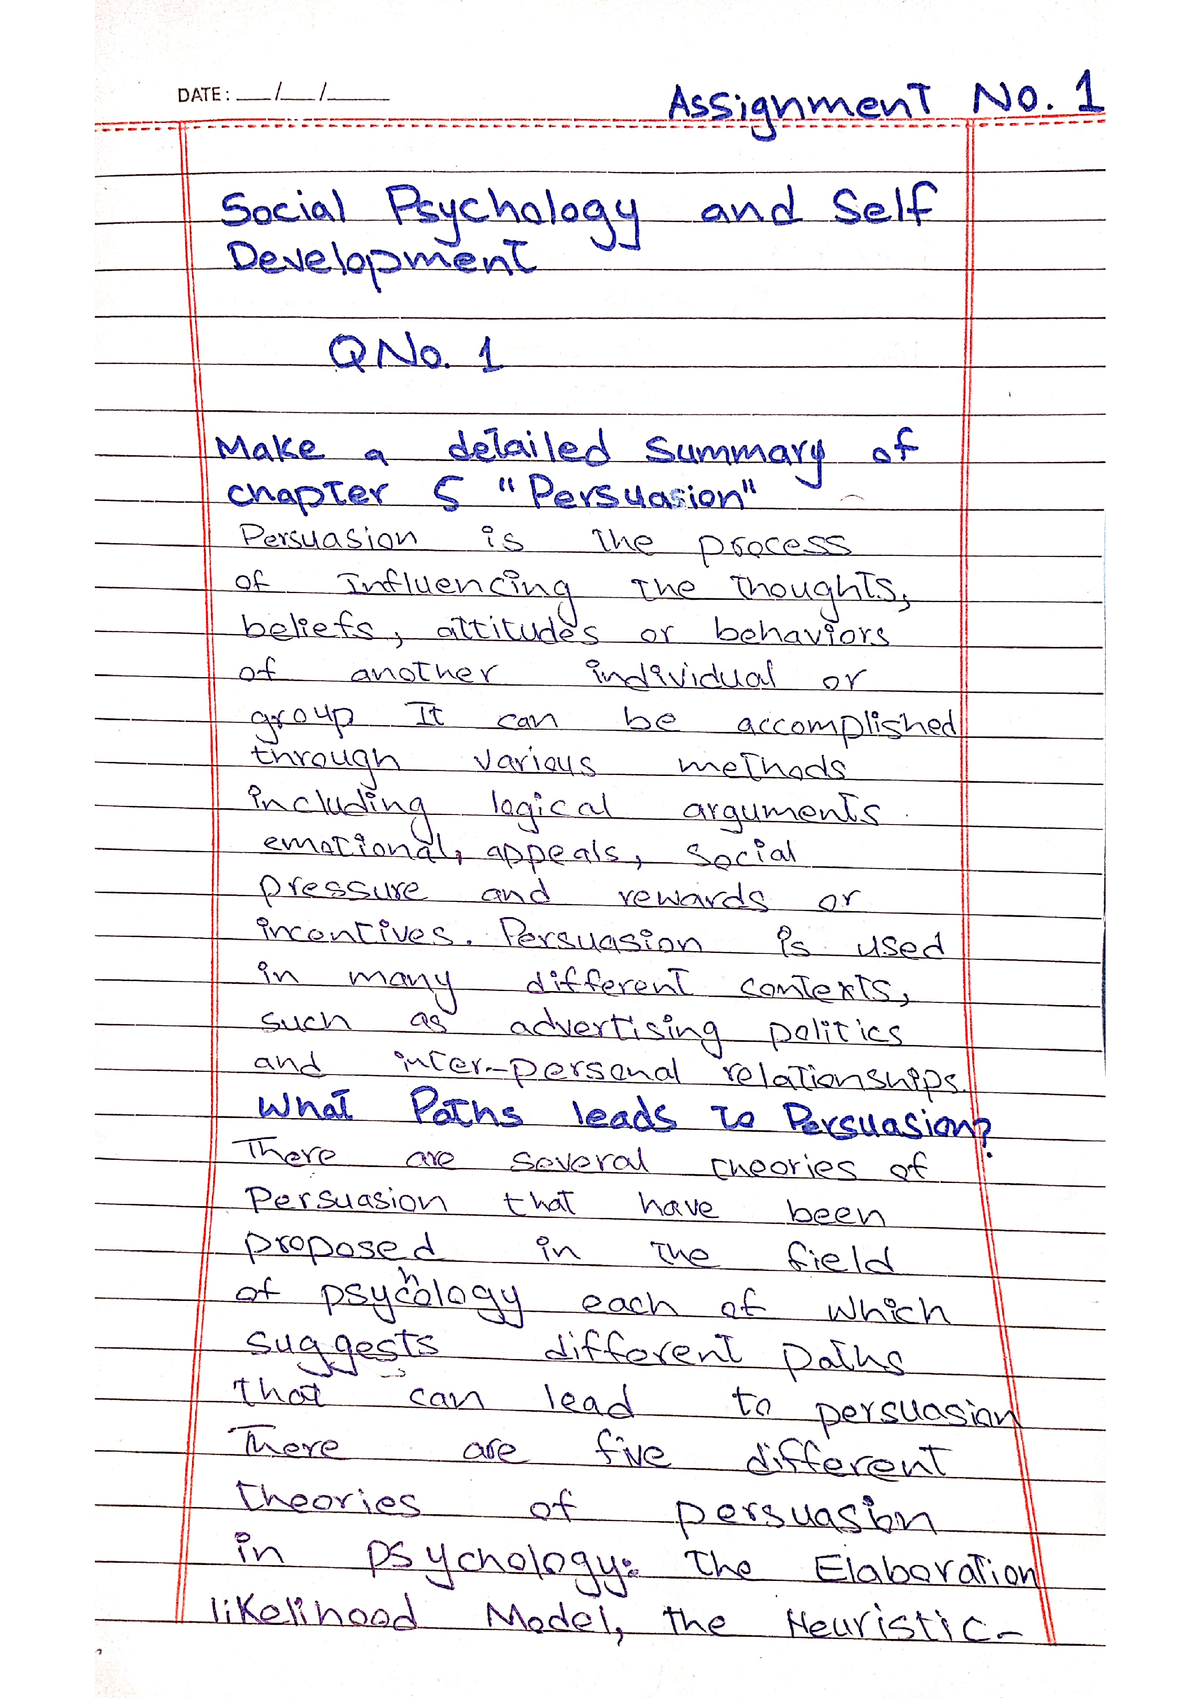 DATE: __/__/____
Assignment No. 1
Social Psychology and Self
Development
Q No. 1
Make a detailed Summary of
chapter 5 "Persuasion"
Persuasion is the process
of Influencing the Thoughts,
beliefs, attitudes or behaviors
of another individual or
group It can be accomplished
through various methods
including logical arguments
emotional, appeals, Social
pressure and rewards or
incentives. Persuasion is used
in many different contexts,
such as advertising politics
and inter-personal relationships.
What Paths leads to Persuasion?
There are several theories of
Persuasion that have been
proposed in the field
of psychology each of which
suggests different paths
that can lead to persuasion
There are five different
theories of persuasion
in psychology: The Elaboration
likelihood Model, the Heuristic-